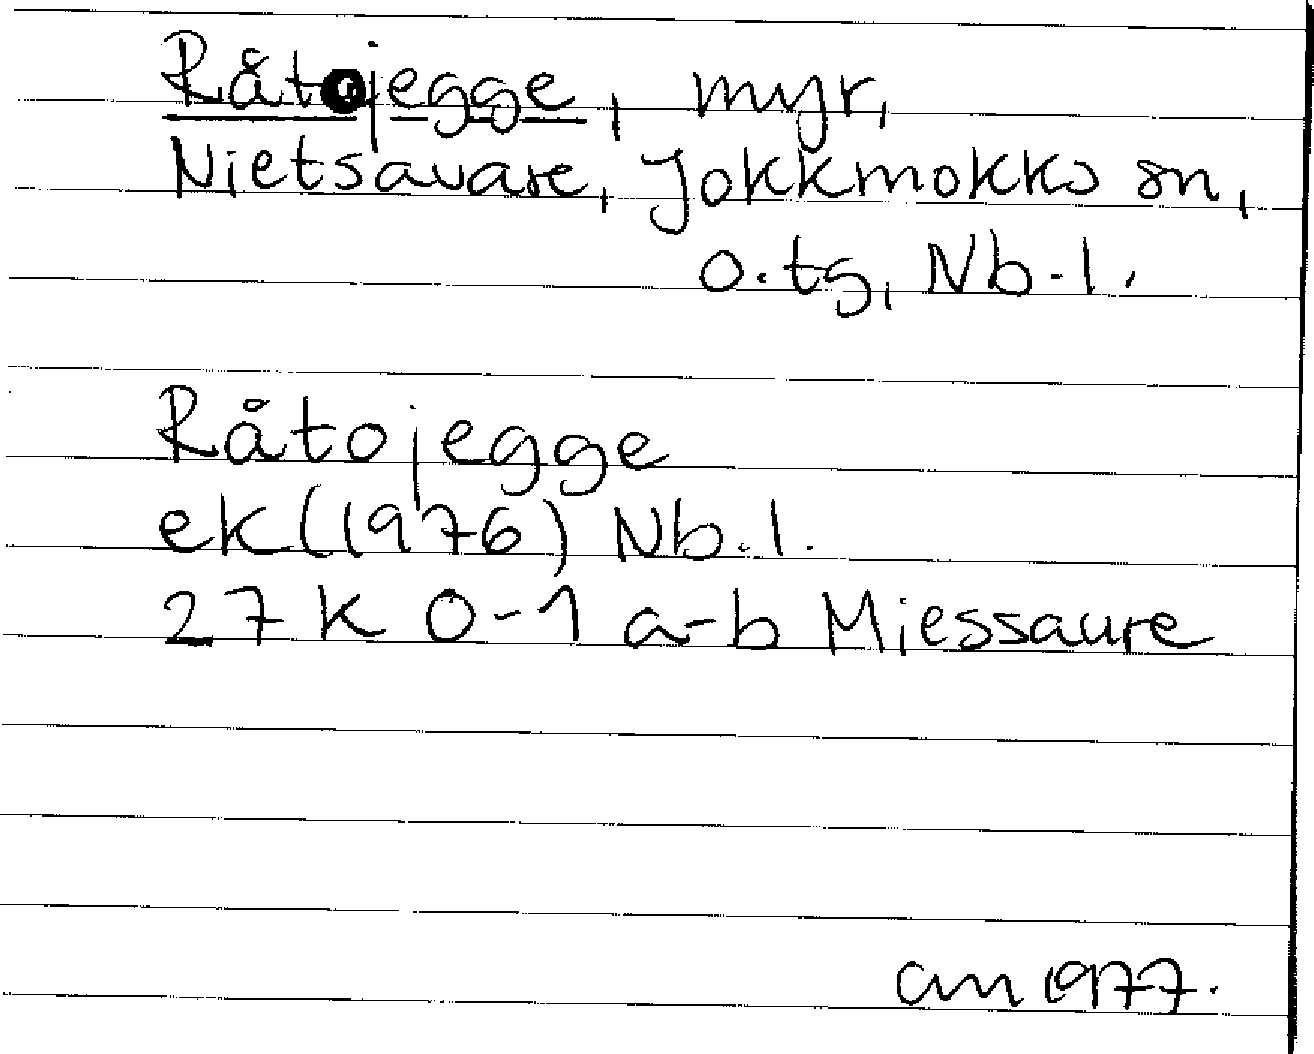 Råtojegge, myr,
Nietsavare, Jokkmokks sn,
o.tg, Nb.l.
Råtojegge
ek (1976) Nb.l.
27 K 0-1 a-b Miessaure
am 1977.